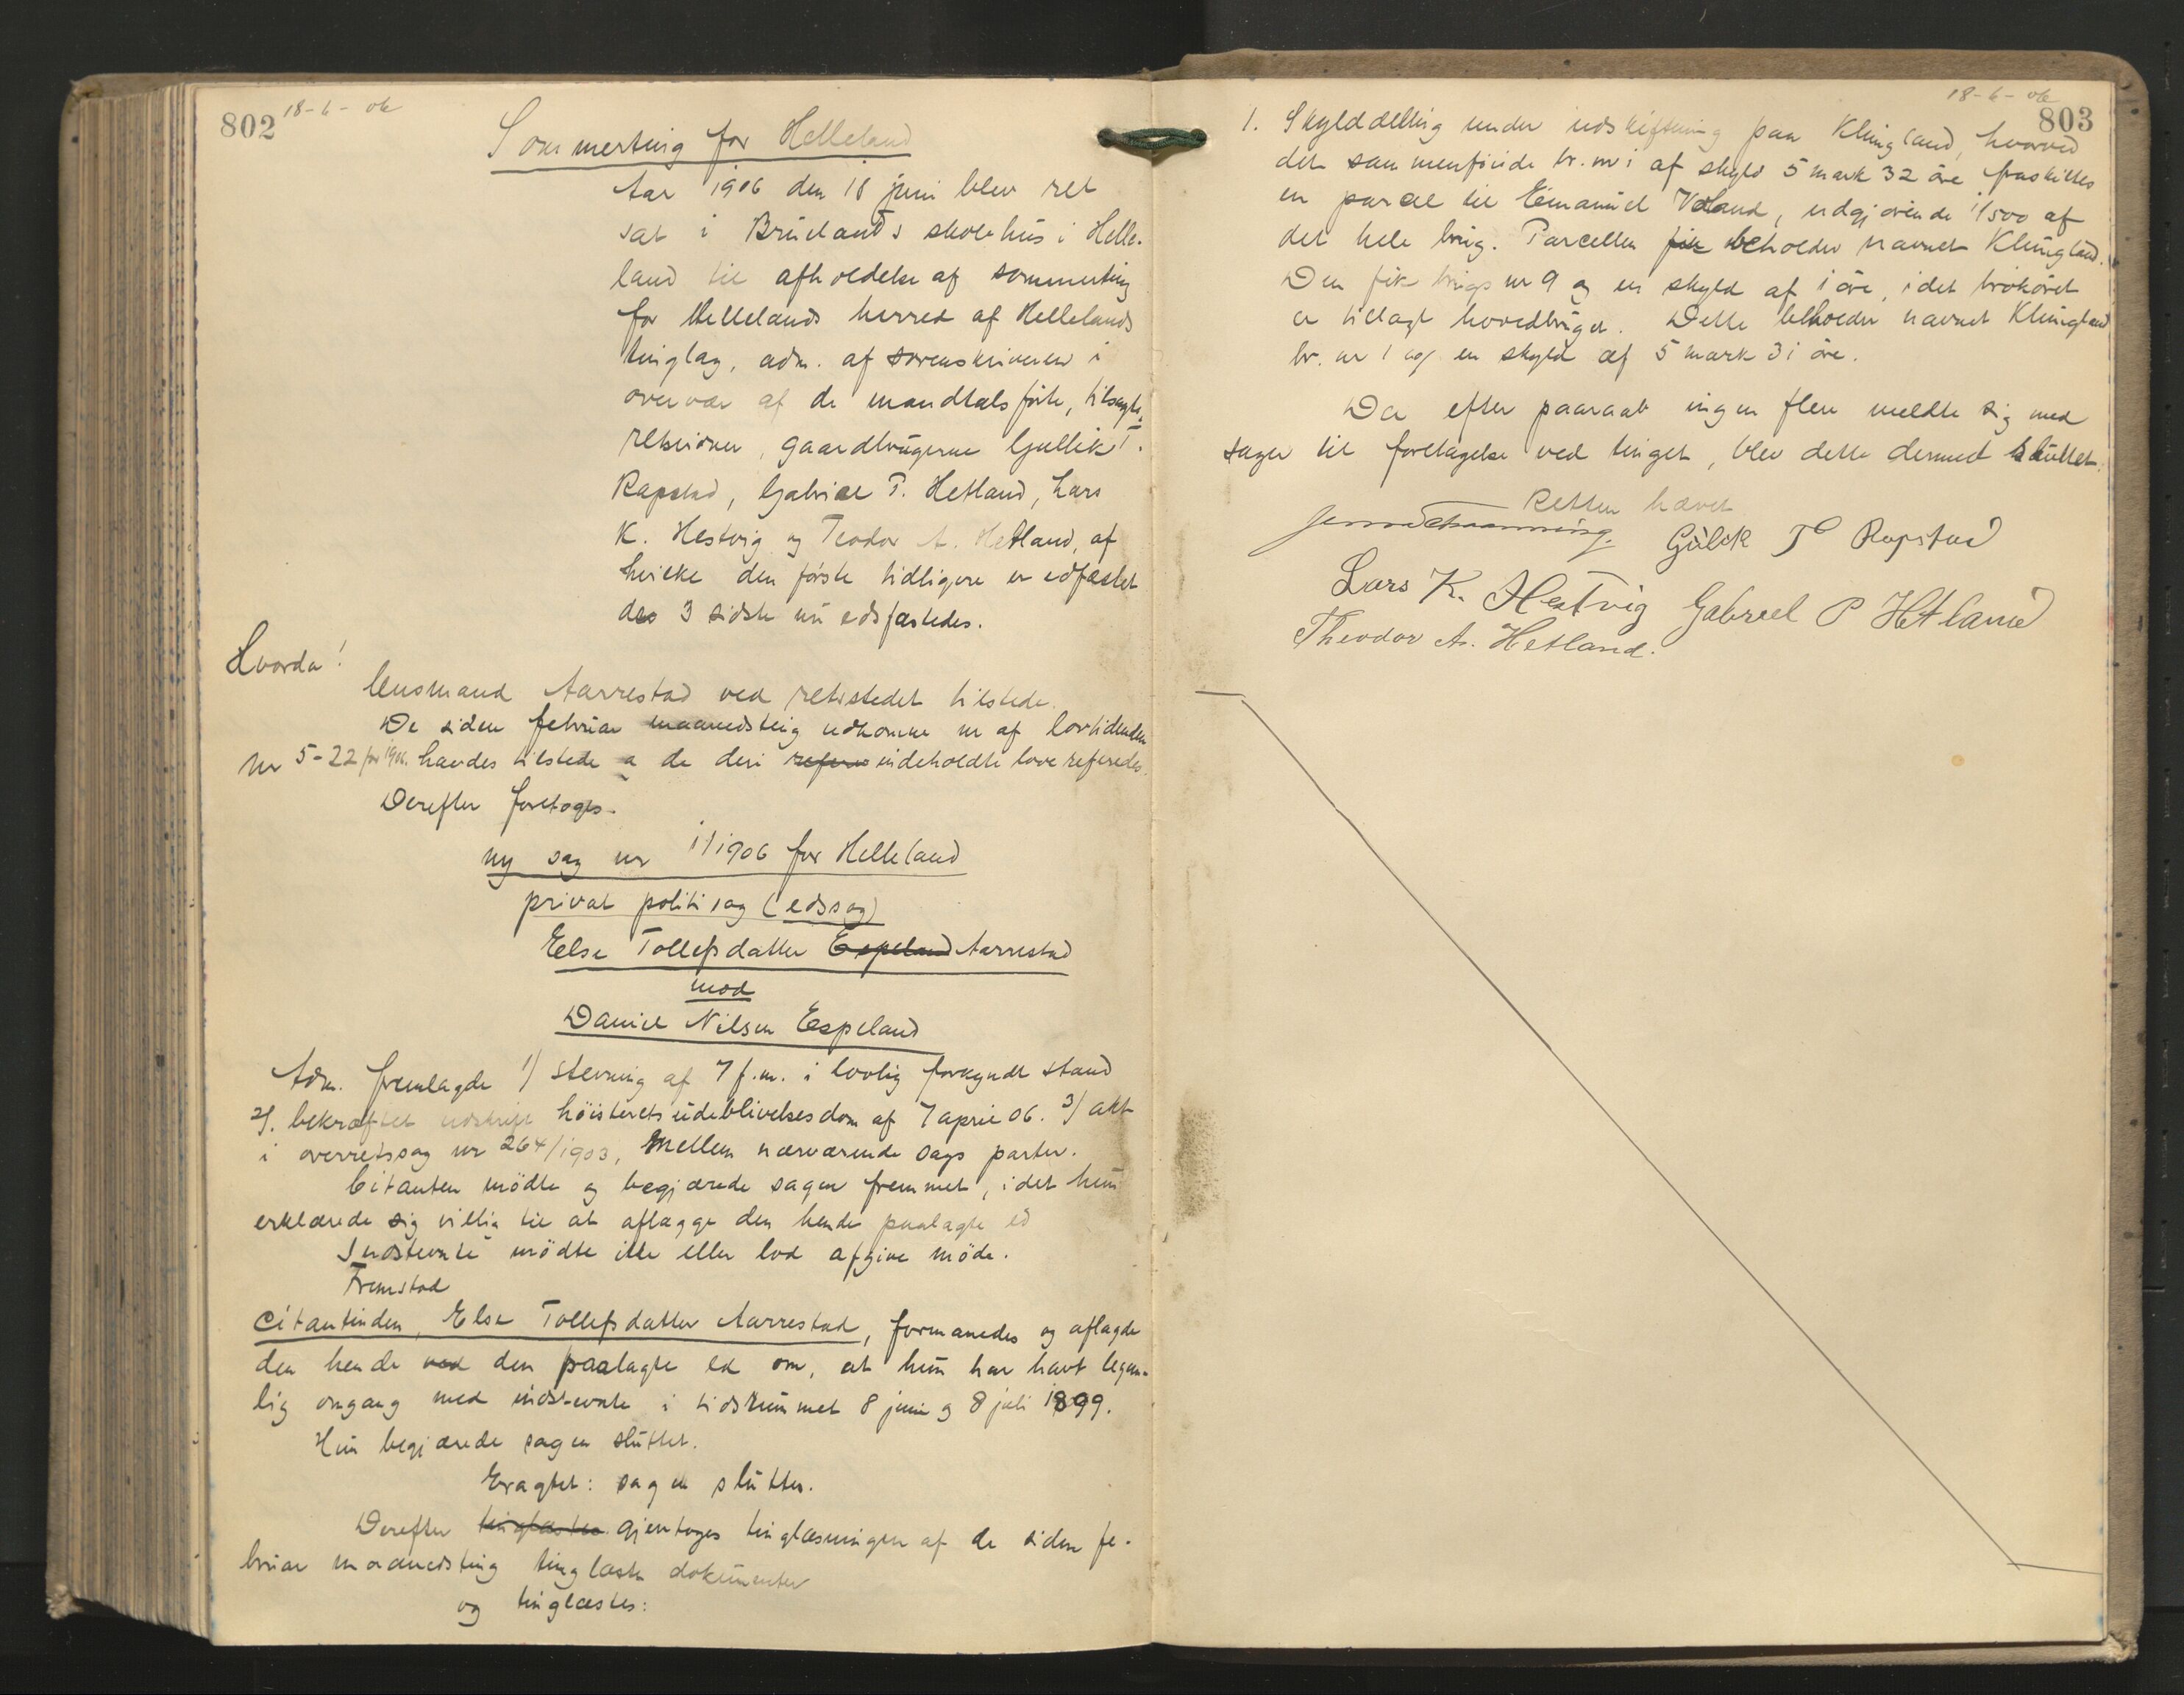 802 18-6-06
Sommerting for Helleland
Aar 1906 den 18 juni blev ret
sat i Bruelands skolehus i Helle-
land til afholdelse af sommerting
for Hellelands herred af Hellelands
tinglag, adm. af sorenskriveren i
overvær af de mandtalsførte, tilsagte
retsvidner, gaardbrugerne Gullik T.
Rapstad, Gabriel P. Hetland, Lars
K. Hestvig og Teodor A. Hetland, af
hvilke den første tidligere er edfæstet
des 3 sidste nu edsfæstedes.
Hvorda!
lensmand Aarrestad ved retsstedet tilstede.
De siden februar maanedsting udkomne nr af lovtidenden
nr 5-22 for 1906. havdes tilstede a de deri refere indeholdte love referedes.
Derefter foretoges.
ny sag nr 1/1906 for Helleland
privat politisag (edssag)
Else Tollefsdatter Espeland Aarrestad
mod
Daniel Nilsen Espeland
Adm. fremlagde 1/ stevning af 7 f.m. i lovlig forkyndt stand
2/. bekræftet udskrift höisterets udeblivelsesdom af 7 april 06. 3/ akt
i overretssag nr 264/1903, mellem nærværende sags parter.
Citanten mödte og begjærede sagen fremmet, idet hun
erklærede sig villig til at aflægge den hende paalagte ed
Indstevnte mödte ikke eller lod afgive möde.
Fremstod
Citantinden, Else Tollefsdatter Aarrestad, formanedes og aflagde
den hende ved den paalagte ed om, at hun har havt legem-
lig omgang med indstevnte i tidsrummet 8 juni og 8 juli 1899.
Hun begjærede sagen sluttet.
Eragtet: sagen sluttes.
Derefter tinglæstes gjentoges tinglæsningen af de siden fe-
bruar maanedsting tinglæste dokumenter
og tinglæstes:
18-6-06
803
1. Skylddelling under udskiftning paa Klungland, hvorved
det sammenføiede br. nr 1 af skyld 5 mark 32 øre fraskilles
en parcel til Emanuel Veland, udgjørende 1/500 af
det hele brug. Parcellen fik beholder navnet Klungland.
Den fik brugs nr 9 og en skyld af 1 øre, idet brøkøret
er tillagt hovedbruget. Dette beholder navnet Klungland
br. nr 1 og en skyld af 5 mark 31 øre.
Da efter paaraab ingen flere meldte sig med
sager til foretagelse ved tinget, blev dette dermed sluttet.
Retten hævet
Gülek T Rapstad
Lars K. Hestvig Gabreel P Hetland
Theodor A. Hetland.